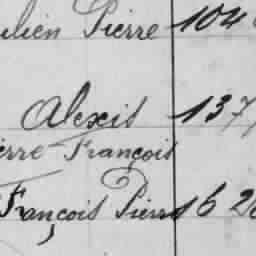 Pierre 104
Alexis 137
François
François Pierre 620